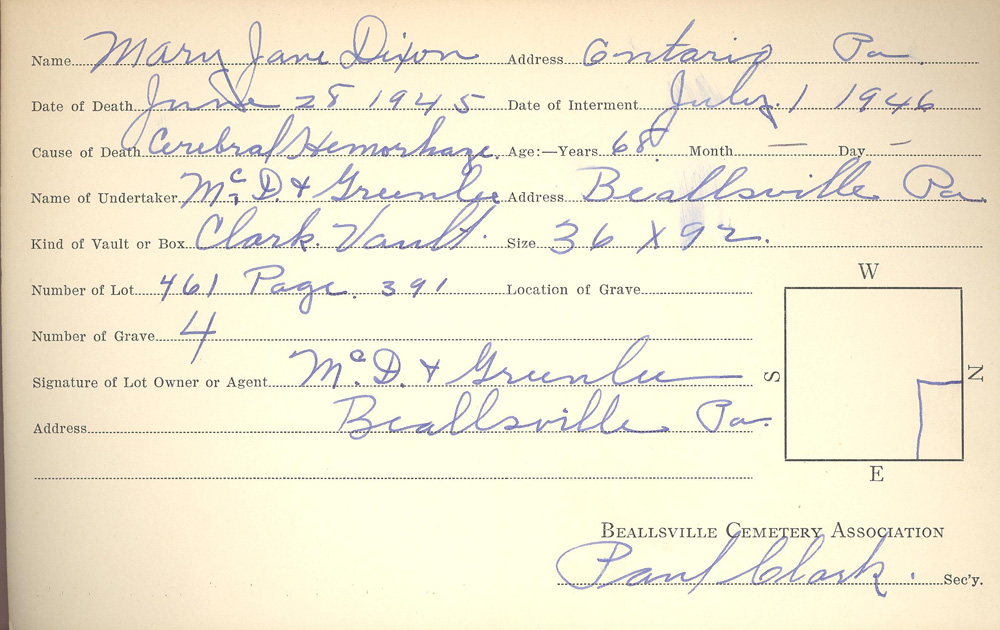 Name Mary Jane Dixon Address Ontario Pa
Date of Death June 28 1945 Date of Interment July 1 1946
Cause of Death Cerebral Hemorhage. Age:—Years 68 Month — Day —
Name of Undertaker McD. & Greenlee Address Beallsville Pa.
Kind of Vault or Box Clark Vault. Size 36 X 92.
Number of Lot 461 Page 391 Location of Grave
Number of Grave 4
Signature of Lot Owner or Agent Mc.D. & Greenlee
Address Beallsville Pa.
W
S
N
E
BEALLSVILLE CEMETERY ASSOCIATION
Paul Clark. Sec'y.